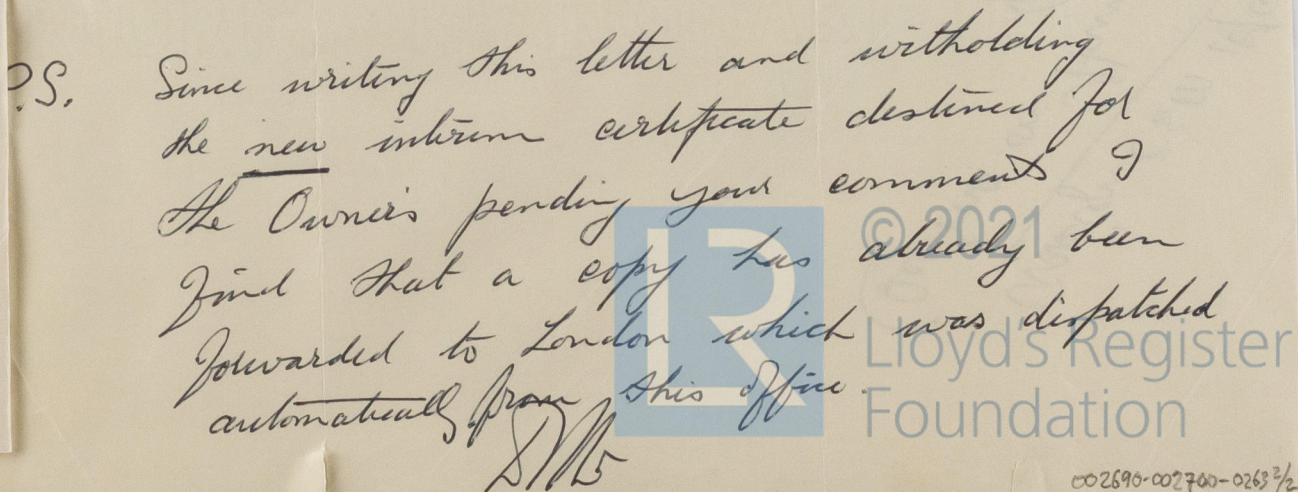 P.S. Since writing this letter and witholding
the new interim certificate destined for
the Owners pending your comments I
find that a copy has already been
forwarded to London which was dispatched
automatically from this office.
LR
© 2021
Lloyd's Register
Foundation
002690-002700-0263 2/2